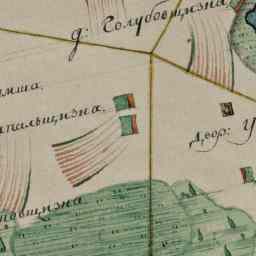 д: Солубовщизна,
мша,
пальщизна,
Двор: У
повщизна